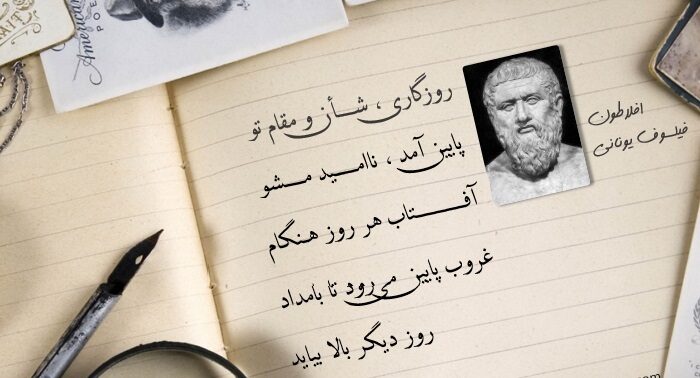 American
POE
روزگاری ، شأن و مقام تو
پایین آمد ، ناامید مشو
آفتاب هر روز هنگام
غروب پایین می‌رود تا بامداد
روز دیگر بالا بیاید
افلاطون
فیلسوف یونانی